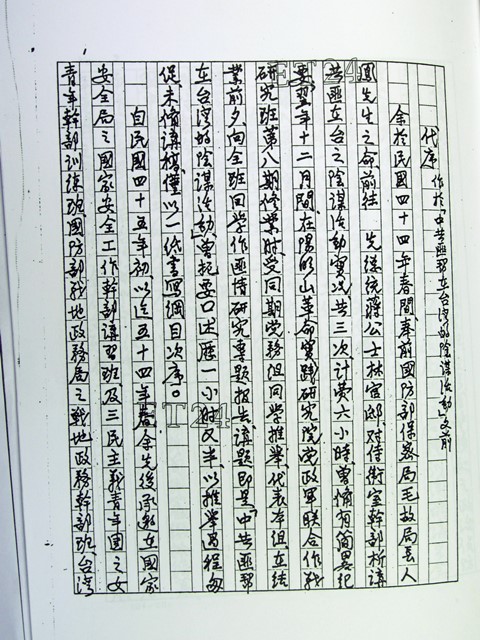 代序 作於「中共匪幫在台灣的陰謀活動」文前
余於民國四十四年春間奉前國防部保密局毛故局長人
鳳先生之命前往 先總統蔣公士林官邸對侍衛室幹部析講
共匪在台之陰謀活動實況共三次計費六小時曾備有簡略紀
要翌年十二月間在陽明山革命實踐研究院党政軍联合作戰
研究班第八期修業時受同期党務組同学推舉代表本組在結
業前夕向全班同学作匪情研究專題报告講題即是「中共匪幫
在台灣的陰謀活動」曾扼要口述歷一小時又半以推舉過程匆
促未備講稿僅以一紙書寫綱目次序。
自民國四十五年初以迄五十四年春余先後承邀在國家
安全局之國家安全工作幹部講習班及三民主義青年团之女
青年幹部訓練班國防部戰地政務局之戰地政務幹部班台灣
ET24
ET24